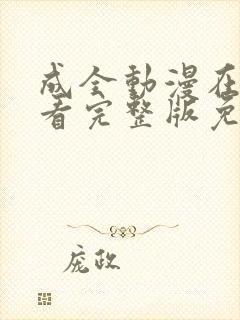 成全動漫在
看完整版免
庞政